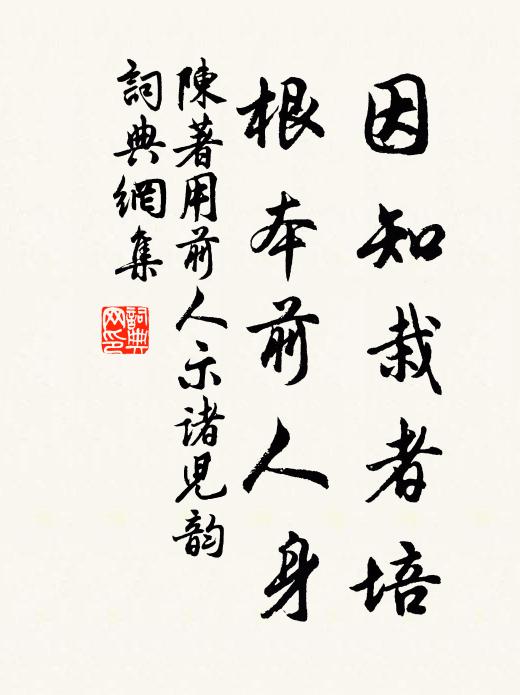 因知栽者培
根本前人身
陳著用前人示諸児韵
詞典網集
詞典
网印